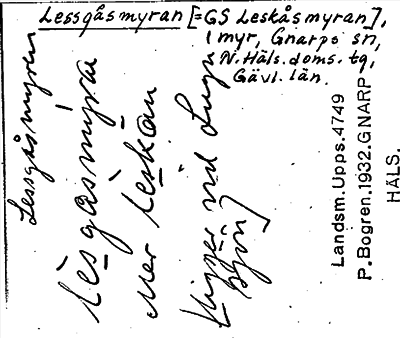 Lessgåsmyran [=GS Leskåsmyran],
myr, Gnarps sn,
N. Häls. doms. tg,
Gävl. län.
Lessgåsmyren
lèsgåsmýra
Mer leskan
ligger vid
sjön]
Landsm. Upps. 4749
P. Bogren. 1932. GNARP
HÄLS.